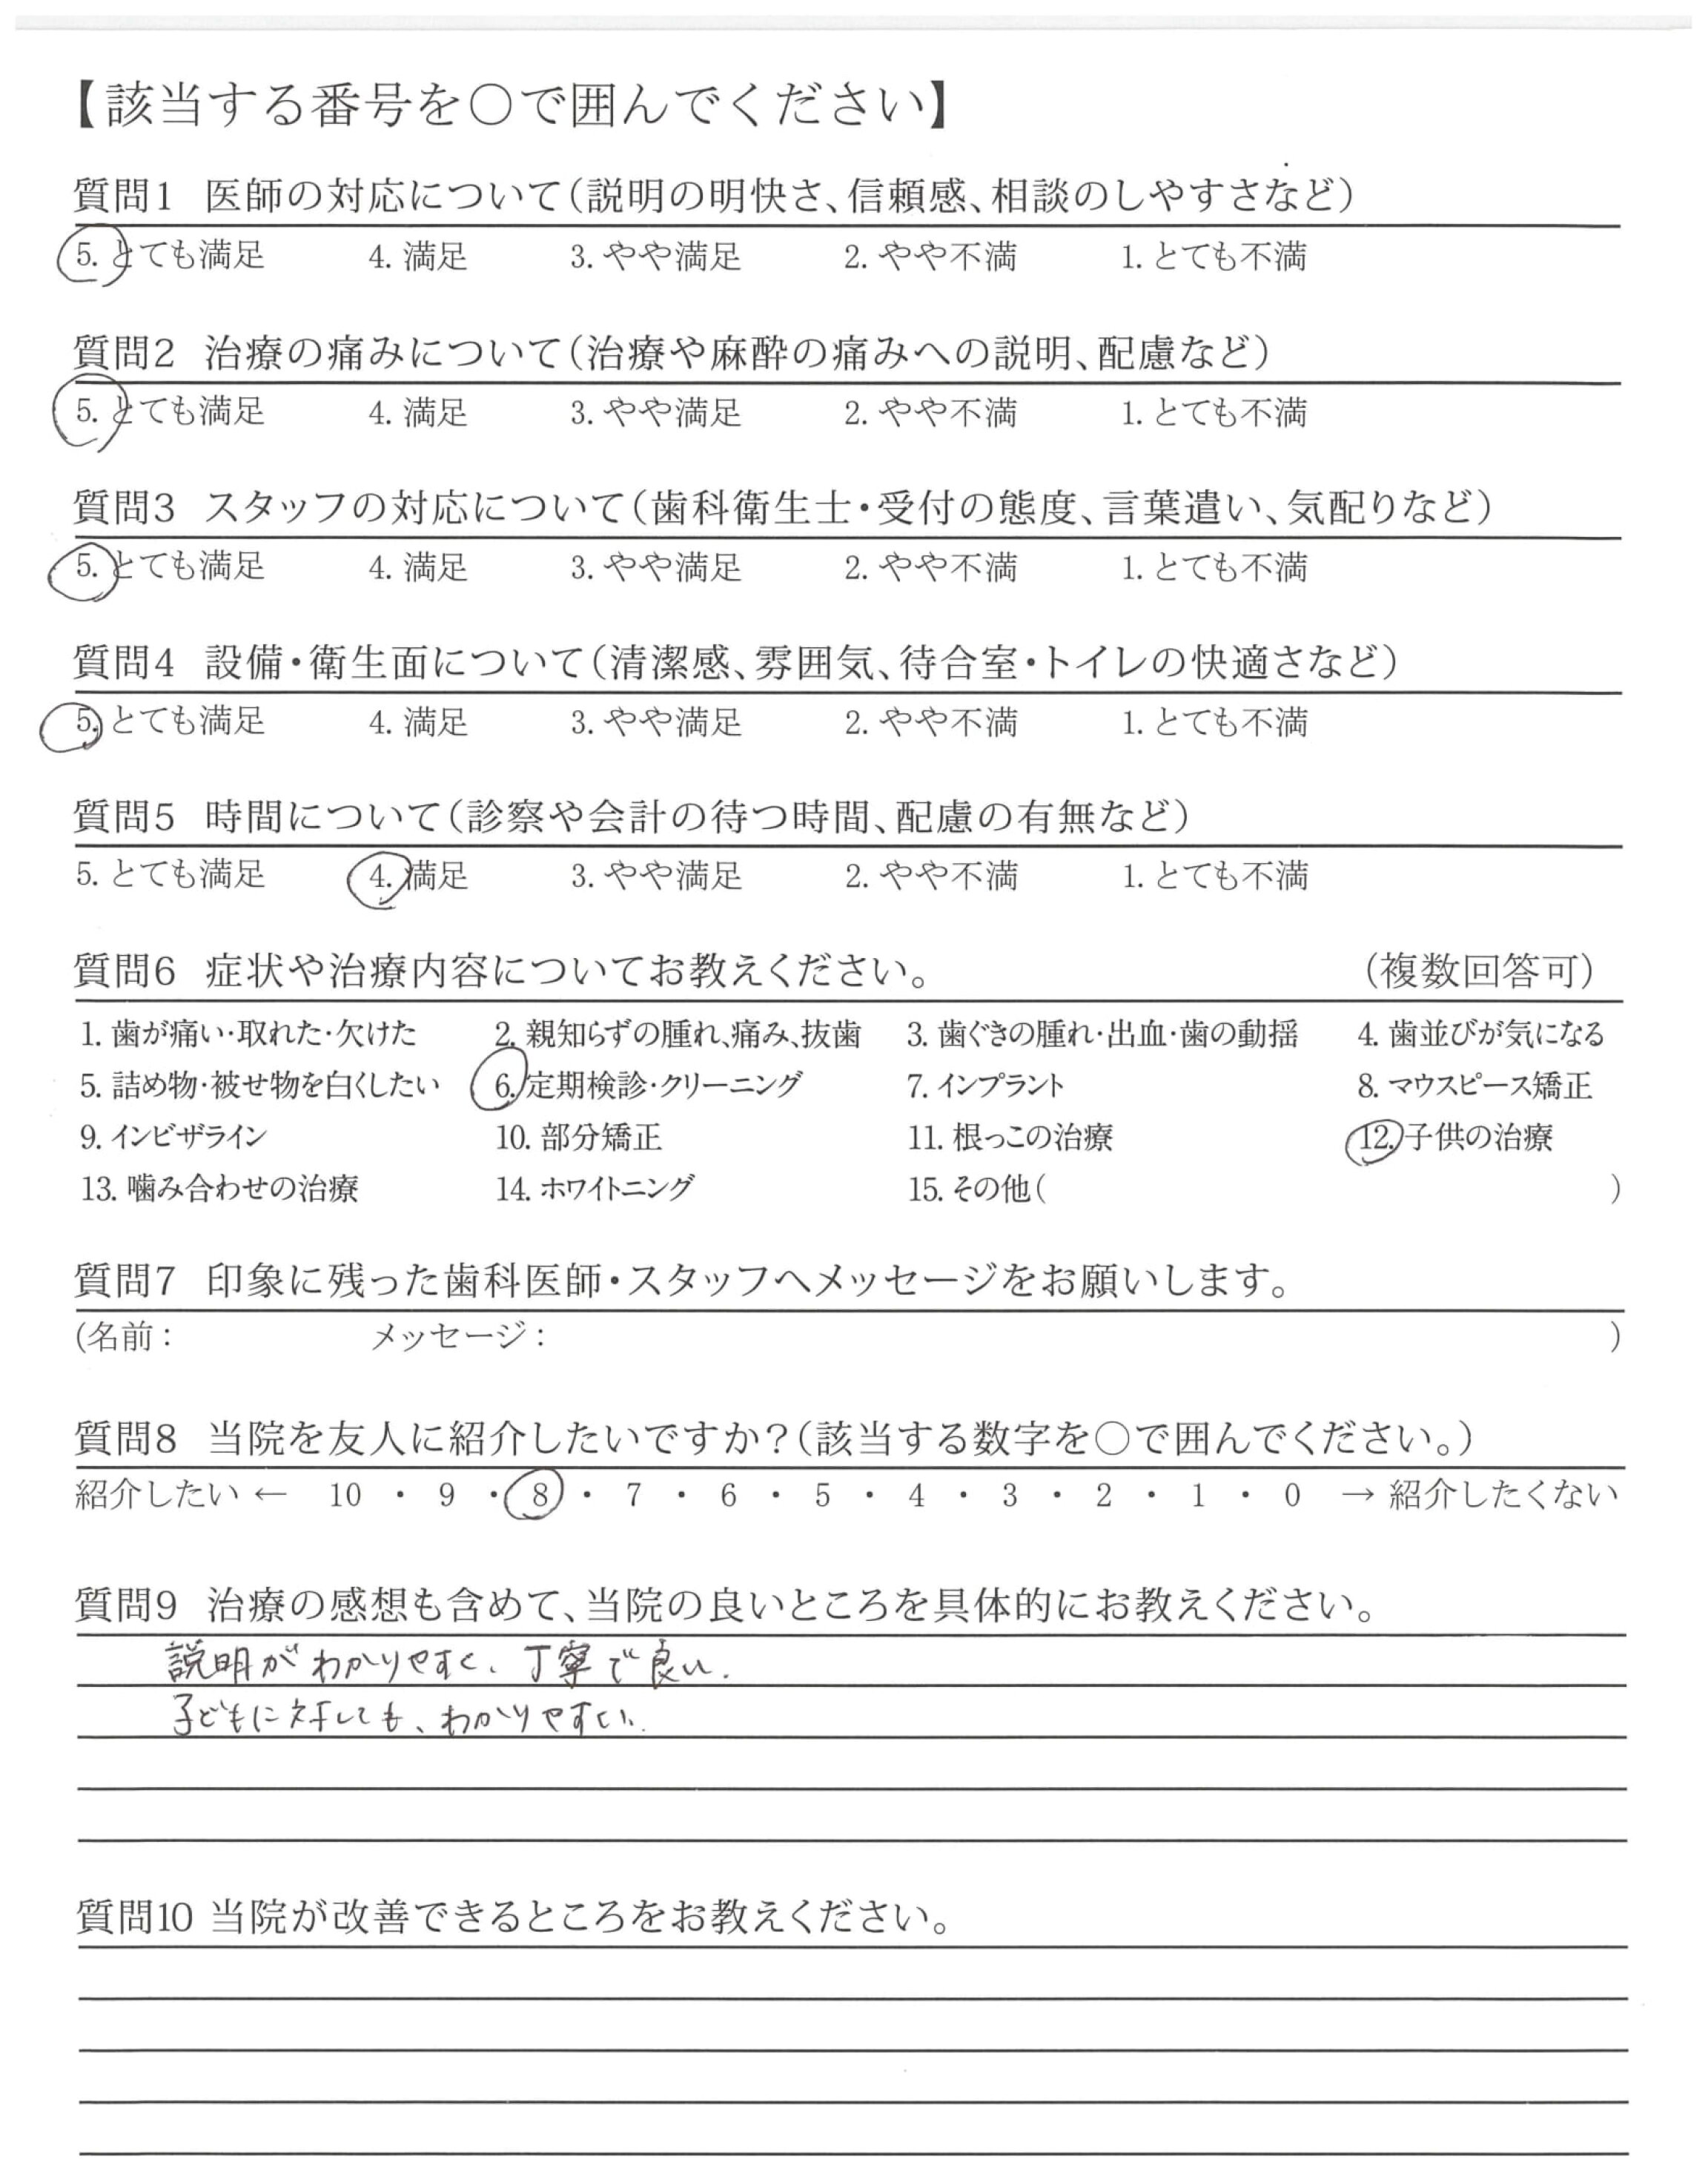 【該当する番号を○で囲んでください】
質問1 医師の対応について（説明の明快さ、信頼感、相談のしやすさなど）
5. とても満足 4. 満足 3. やや満足 2. やや不満 1. とても不満
質問2 治療の痛みについて（治療や麻酔の痛みへの説明、配慮など）
5. とても満足 4. 満足 3. やや満足 2. やや不満 1. とても不満
質問3 スタッフの対応について（歯科衛生士・受付の態度、言葉遣い、気配りなど）
5. とても満足 4. 満足 3. やや満足 2. やや不満 1. とても不満
質問4 設備・衛生面について（清潔感、雰囲気、待合室・トイレの快適さなど）
5. とても満足 4. 満足 3. やや満足 2. やや不満 1. とても不満
質問5 時間について（診察や会計の待つ時間、配慮の有無など）
5. とても満足 4. 満足 3. やや満足 2. やや不満 1. とても不満
質問6 症状や治療内容についてお教えください。 （複数回答可）
1. 歯が痛い・取れた・欠けた 2. 親知らずの腫れ、痛み、抜歯 3. 歯ぐきの腫れ・出血・歯の動揺 4. 歯並びが気になる
5. 詰め物・被せ物を白くしたい 6. 定期検診・クリーニング 7. インプラント 8. マウスピース矯正
9. インビザライン 10. 部分矯正 11. 根っこの治療 12. 子供の治療
13. 噛み合わせの治療 14. ホワイトニング 15. その他（ ）
質問7 印象に残った歯科医師・スタッフへメッセージをお願いします。
(名前： メッセージ： )
質問8 当院を友人に紹介したいですか？（該当する数字を○で囲んでください。）
紹介したい ← 10 ・ 9 ・ 8 ・ 7 ・ 6 ・ 5 ・ 4 ・ 3 ・ 2 ・ 1 ・ 0 → 紹介したくない
質問9 治療の感想も含めて、当院の良いところを具体的にお教えください。
説明がわかりやすく、丁寧で良い.
子どもに対しても、わかりやすい.
質問10 当院が改善できるところをお教えください。